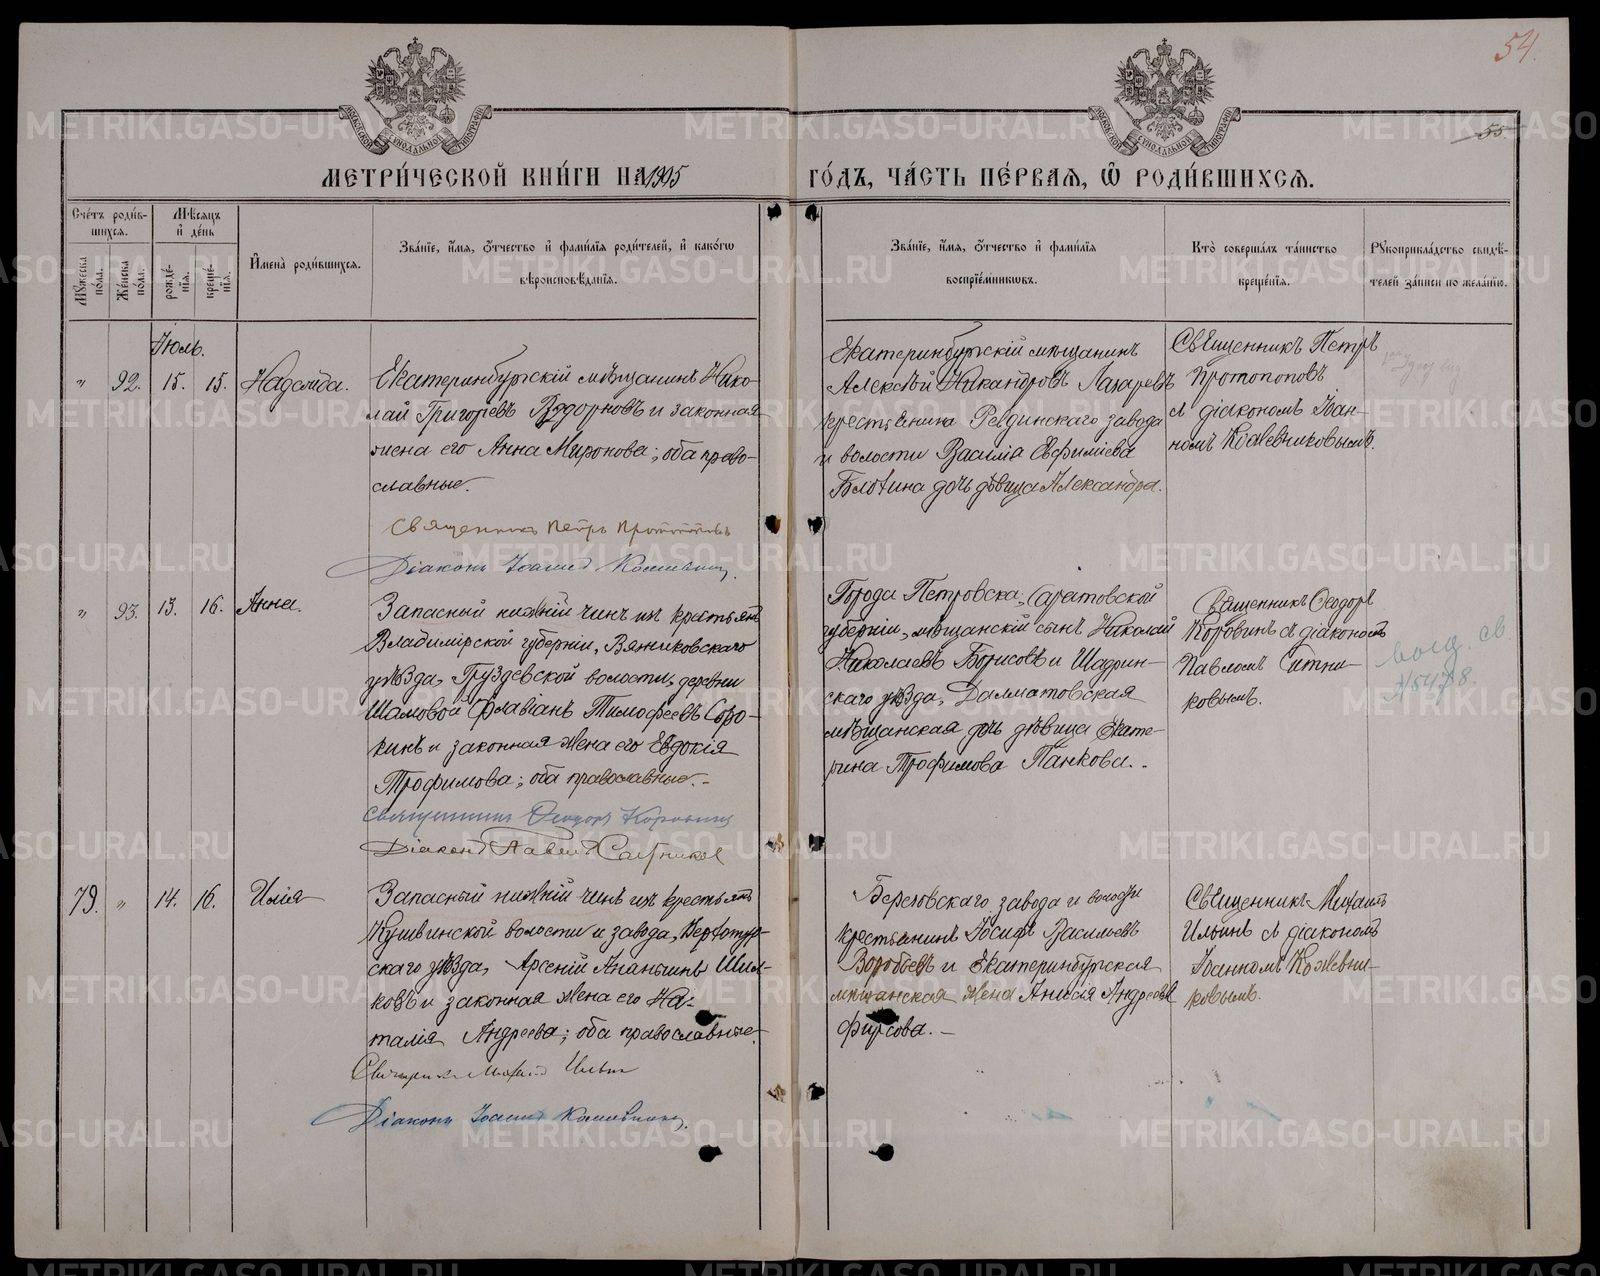 54.
55.
МЕТРИ́ЧЕСКОЙ КНИ́ГИ НА 1905 ГО́ДЪ, ЧА́СТЬ ПЕ́РВАЯ, Ѡ РОДИ́ВШИХСЯ.
Сче́тъ роди́в-
шихся.
Мѣ́сяцъ
и де́нь
Му́жеска по́ла.
Же́нска по́ла.
рожде́нїя.
креще́нїя.
Имена̀ роди́вшихся.
Зва́нїе, и́мя, о́тчество и фами́лїя роди́телей, и како́гѡ
вѣроисповѣ́данїя.
Зва́нїе, и́мя, о́тчество и фами́лїя
воспрїе́мникѡвъ.
Кто̀ соверша́лъ та́инство
креще́нїя.
Рукоприкла́дство свидѣ́-
телей за́писи по жела́нїю.
Іюль.
" 92. 15. 15. Надежда.
Екатеринбургскій мѣщанинъ Нико-
лай Григорьевъ и законная
жена его Анна Миронова; оба право-
славные.
Священникъ Петръ Протопоповъ
Діаконъ Іоаннъ Кожевниковъ.
Екатеринбургскій мѣщанинъ
Алексѣй Никандровъ Лазаревъ
крестьянина Ревдинскаго завода
и волости Василія Евфиміева
дочь дѣвица Александра.
Священникъ Петръ
Протопоповъ
с діакономъ Іоан-
номъ Кожевниковымъ.
" 93. 13. 16. Анна.
Запасный нижній чинъ изъ крестьянъ
Владимірской губерніи, Вязниковскаго
уѣзда, Груздевской волости, деревни
Шамовой Флавіанъ Тимофеевъ Соро-
кинъ и законная жена его Евдокія
Трофимова; оба православные.-
Священникъ Ѳеодоръ Коровинъ
Діаконъ Павелъ Ситниковъ
Города Петровска, Саратовской
губерніи, мѣщанскій сынъ Николай
Николаевъ Борисовъ и Шадрин-
скаго уѣзда, Далматовская
мѣщанская дочь дѣвица Екате-
рина Трофимова Панкова..
Священникъ Ѳеодоръ
Коровинъ с діакономъ
Павломъ Ситни-
ковымъ.
выд. св.
№5478.
79. " 14. 16. Илія
Запасный нижній чинъ изъ крестьянъ
Кушвинской волости и завода, Верхотур-
скаго уѣзда, Арсеній Ананьинъ
и законная жена его На-
талія Андреева; оба православные.
Священникъ Михаилъ Ильинъ
Діаконъ Іоаннъ Кожевниковъ.
Березовскаго завода и волости
крестьянинъ Іосифъ Васильевъ
Воробьевъ и Екатеринбургская
мѣщанская жена Анисія Андреева
Фирсова.-
Священникъ Михаилъ
Ильинъ с діакономъ
Іоанномъ Кожевни-
ковымъ.
METRIKI.GASO-URAL.RU